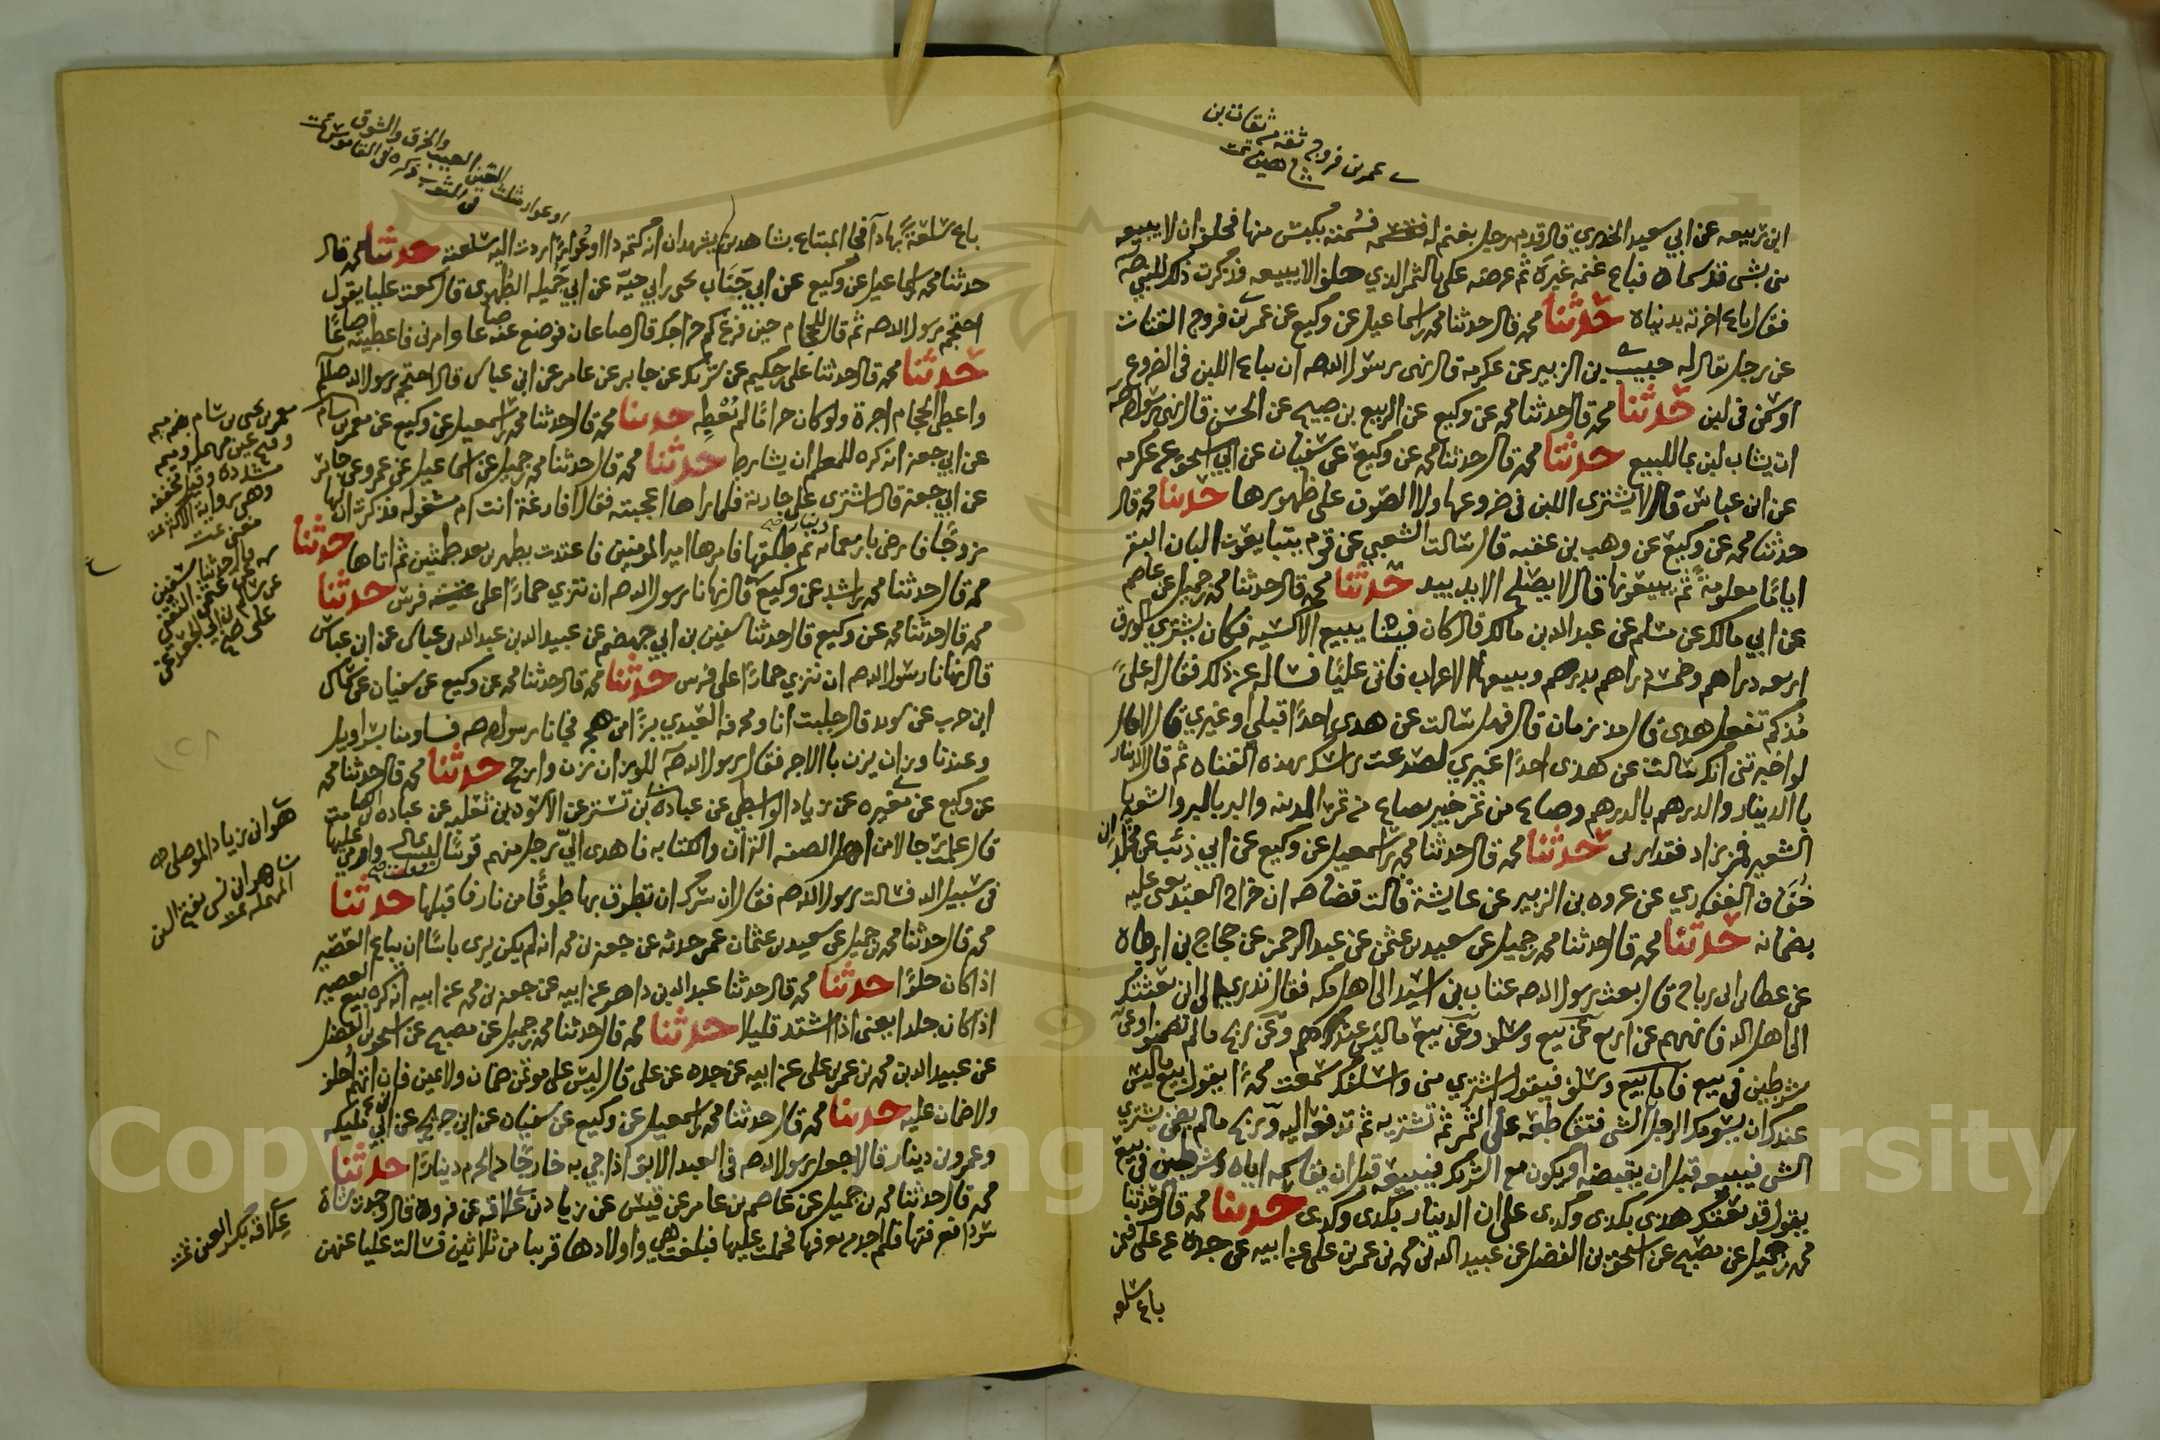 عمر بن فروج ثقة من ثقات بن
شاهين تمت
ابن ربيعه عن ابي سعيد الخدري قال قدم رجل بغنم له فقسمه فسُمته بكبش منها فحلف ان لا يبيعه
من بشي قد سماه فباع غنمه غيره ثم عرضه على بالثمن الذي حلف الا يبيعه فذكرت ذلك للنبي صه
فقال باع اخرته بدنياه حدثنا محمد قال حدثنا محمد بن اسماعيل عن وكيع عن عمر بن فروج القتات
عن رجل يقال له حبيب بن الزبير عن عكرمه قال نهى رسول الله صه ان يباع اللبن في الضروع
او سمن في لبن حدثنا محمد قال حدثنا محمد عن وكيع عن الربيع بن صبيح عن الحسن قال نهى رسول الله صه
ان يشاب لبن بما للبيع حدثنا محمد قال حدثنا محمد عن وكيع عن سفيان عن ابي اسحق عن عكرمه
عن ابن عباس قال لا يشترى اللبن في ضروعها ولا الصوف على ظهورها حدثنا محمد قال
حدثنا محمد عن وكيع عن وهب بن عقبه قال سالت الشعبي عن قوم يتبايعون البان البقر
اياما معلومة ثم يبيعونها قال لا يصلح الا يد بيد حدثنا محمد قال حدثنا محمد بن جميل عن عاصم
عن ابي مالك عن مسلم عن عبد الله بن مالك قال كان فينا يبيع الاكسيه فكان يشتري الورق
اربعه دراهم وخمسة دراهم بدرهم ويبيعها الاعراب فاتى عليا فساله عن ذلك فقال له علي
مُذ كم تفعل هذى قال مذ زمان قال فهل سالت عن هذى احدا قبلي او غيري قال لا قال
لو اخبرتني انك سالت عن هذى احدا غيري لصدعت راسك بهذه القناه ثم قال الدينار
با الدينار والدرهم بالدرهم وصاع من تمر خيبر بصاع من تمر المدينه والبر بالبر والشعير با
الشعير فمن زاد فقد اربى حدثنا محمد قال حدثنا محمد بن اسمعيل عن وكيع عن ابي ذئب عن مخلد ابن
خُفَاف الغفاري عن عروه بن الزبير عن عايشة قالت قضا صه ان خراج العبد يعني عليه
بضمانه حدثنا محمد قال حدثنا محمد بن جميل عن سعيد بن عثمن عن عبد الرحمن عن حجاج بن ارطاه
عن عطا بن ابي رباح قال بعث رسول الله صه عتاب بن اسيد الى اهل مكه فقال تدري الى اين بعثتك
الى اهل الله فانههم عن اربع عن بيع وسلف وعن بيع ما ليس عندهم وعن ربح ما لم تضمنوا وعن
شرطين في بيع فاما بيع وسلف فيقول اشتري مني واسلفك سمعت محمدا يقول بيع ما ليس
عندك ان يسومك الرجل الشي فتقاطعه على الثمن ثم تشتريه ثم تدفعه اليه وربح ما لم يضمن يشتري
الشي فيبيعه قبل ان يقبضه او يكون مع الشريك فيبيعه قبل ان يقاسمه اياه وشرطين في بيع
يقول قد بعتك هذى بكدى وكدى على ان الدينار بكدى وكدى حدثنا محمد قال حدثنا
محمد بن جميل عن مصبح عن اسحق بن الفضل عن عبيد الله بن محمد بن عمر بن علي عن ابيه عن جده عن علي فمن
باع سلعه
والخرق والشوق
او عوار مثلث العين العيب
في الثوب ذكره في القاموس تمت
باع سلعة بها دآ فجا المبتاع بشاهدين يشهدان انه كتمه دا او عُوارا ردت اليه سلعته حدثنا محمد قال
حدثنا محمد بن اسماعيل عن وكيع عن ابي جَنَاب يحيى بن ابي حيّه عن ابي جَميله الطُهوى قال سمعت عليا يقول
احتجم رسول الله صه ثم قال للحجام حين فرغ كم خراجك قال صاعان فوضع عنه صاعا وامرني فاعطيته صاعا
حدثنا محمد قال حدثنا علي بن حكيم عن شريك عن جابر عن عامر عن ابن عباس قال احتجم رسول الله صلم
واعطى الحجام اجرة ولو كان حراما لم يُعْطِه حدثنا محمد قال حدثنا محمد بن اسمعيل عن وكيع عن معمر بن سام
عن ابي جعفر انه كره للمعلم ان يشارط حدثنا محمد قال حدثنا محمد بن جميل عن اسماعيل عن عمرو عن جابر
عن ابي جعفر قال اشترى علي جارية فلما راها اعجبته فقال افارغة انت ام مشغوله فذكرت ان لها
زوجًا فارضى باربعمائه دينار ثم طلقها فامرها امير المومنين فاعتدت بطهر بعد طمثين ثم اتاها حدثنا
محمد قال حدثنا محمد بن راشد عن وكيع قال نهانا رسول الله صه ان ننزي حمارًا على فرس حدثنا
محمد قال حدثنا محمد عن وكيع قال حدثنا سفين بن ابي جهضم عن عبيد الله بن عبد الله بن عباس عن ابن عباس
قال نهانا رسول الله صه ان ننزي حمارًا على فرس حدثنا محمد قال حدثنا محمد عن وكيع عن سفيان عن سماك
ابن حرب عن سويد قال جلبت انا ومخرفه العبدي بزًا من هجر فجانا رسول الله صه فساومنا بسراويل
وعندنا وزان يزن با الاجر فقال رسول الله صه للوزان زن وارجح حدثنا محمد قال حدثنا محمد
عن وكيع عن مغيره عن زياد الواسطي عن عباده بن نسى عن الاسود بن ثعلبه عن عباده بن الصامت
قال علمت رجالا من اهل الصفه القران والكتابه فاهدى اليّ رجل منهم قوسًا ليست بمال وارمي عليها
في سبيل الله فسالت رسول الله صه فقال ان سرك ان تطوق بها طوقًا من نار فاقبلها حدثنا
محمد قال حدثنا محمد بن جميل عن سعيد بن عثمان عمن حدثه عن جعفر بن محمد انه لم يكن يرى باسا ان يباع العصير
اذا كان حلوًا حدثنا محمد قال حدثنا عبد الله بن داهر عن ابيه عن جعفر بن محمد عن ابيه انه كره بيع العصير
اذا كان جلدا يعني اذا اشتد قليلا حدثنا محمد قال حدثنا محمد بن جميل عن مصبح عن اسحق بن الفضل
عن عبيد الله بن محمد بن عمر بن علي عن ابيه عن جده عن علي قال ليس على موتمن ضمان ولا يمين فان اتهم اُحلف
ولا ضمان عليه حدثنا محمد قال حدثنا محمد بن اسمعيل عن وكيع عن سفيان عن ابن جريج عن ابن ابي مليكه
وعمرو بن دينار قالا جعل رسول الله صه في العبد الابق اذا جي به خارجا من الحرم دينارًا حدثنا
محمد قال حدثنا محمد بن جميل عن عاصم بن عامر عن قيس عن زياد بن علاقه عن فروه قال وجدت شاة
شردا فعرفتها فلم اجد من يعرفها فحملت عليها فبلغت هي واولادها قريبا من ثلاثين فسالت عليا عنهن
معمر بن يحيى بن سام بضم ميم
وفتح عين مهمله وميم
مشدده وقيل بتخفيفه
وهي رواية الاكثر تمت
مغني تمت
على صح
هو ابن زياد الموصلي صح
المهمله تمت
عِلَاقه بكسر العين تمت